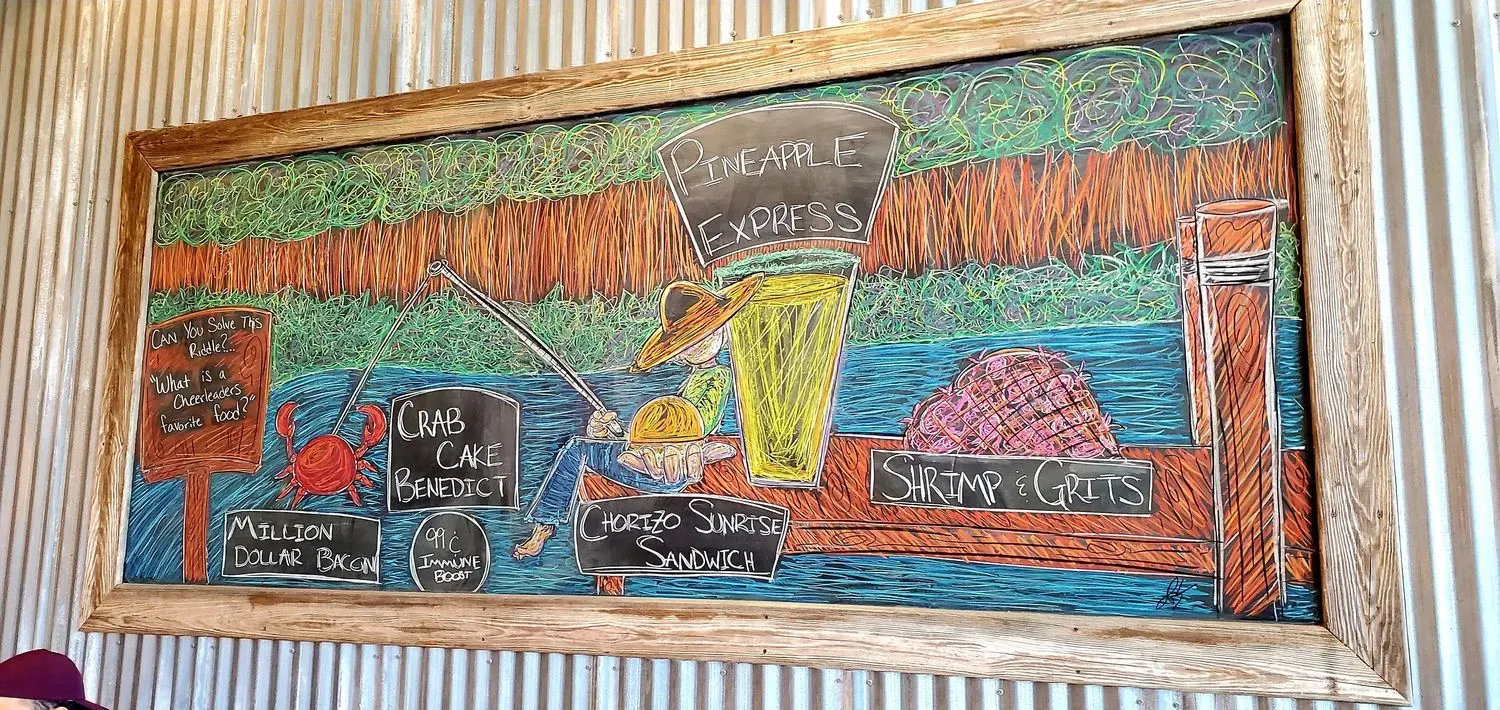 PINEAPPLE
EXPRESS
CAN YOU SOLVE THIS
RIDDLE?...
"WHAT IS A
CHEERLEADERS
FAVORITE FOOD?"
CRAB
CAKE
BENEDICT
MILLION
DOLLAR BACON
99¢
IMMUNE
BOOST
CHORIZO SUNRISE
SANDWICH
SHRIMP & GRITS